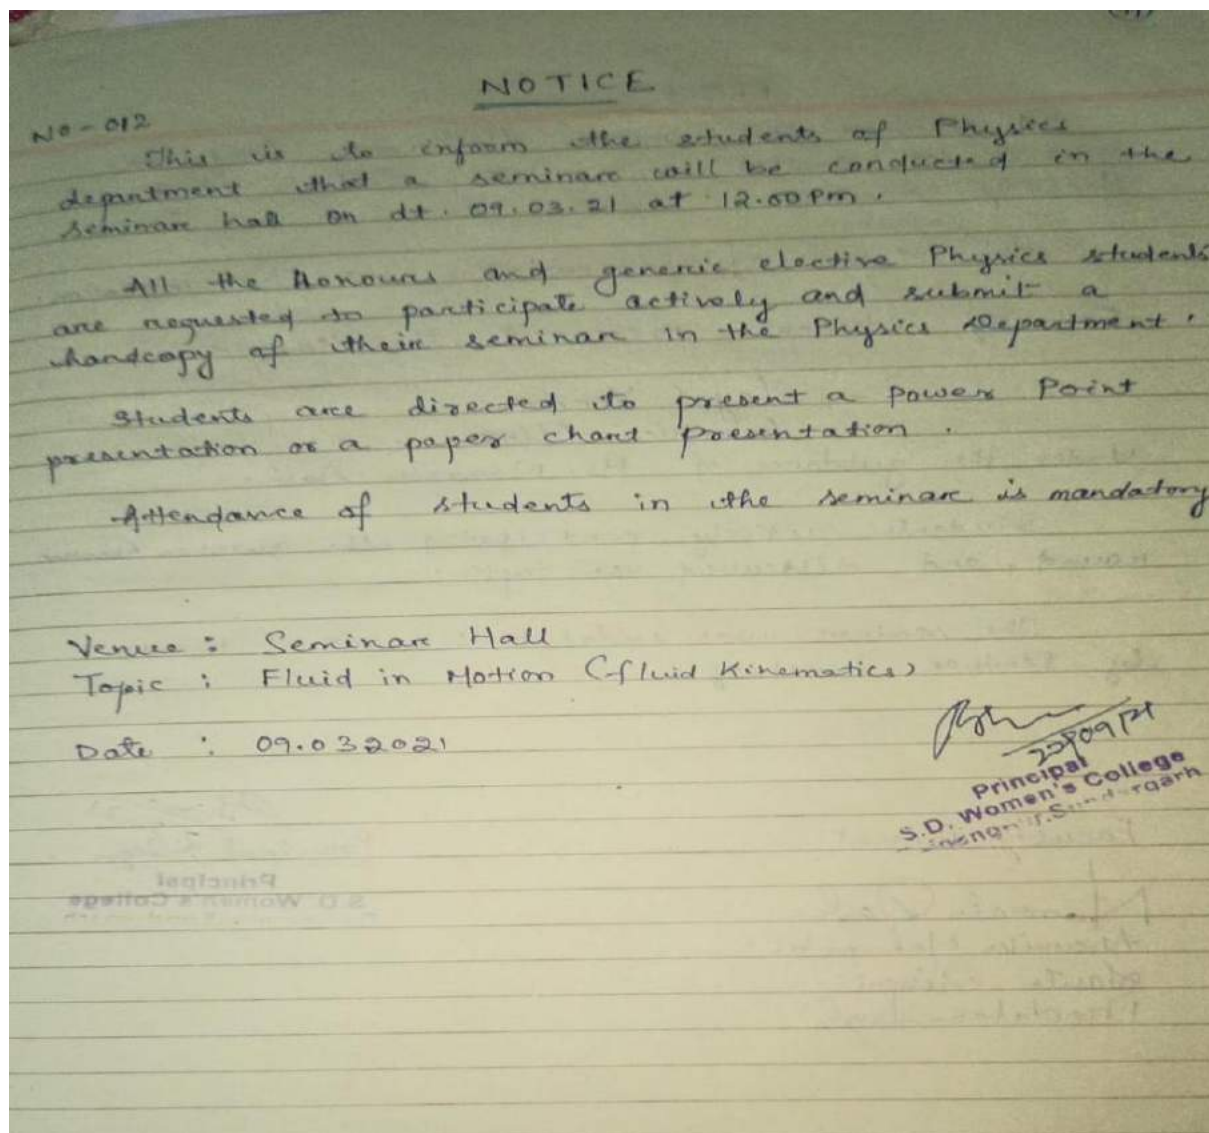 NOTICE
NO - 012
This is to inform the students of Physics
department that a seminar will be conducted in the
seminar hall on dt. 09.03.21 at 12.00 Pm.
All the Honours and generic elective Physics students
are requested to participate actively and submit a
hardcopy of their seminar in the Physics Department.
Students are directed to present a Power Point
presentation or a paper chart presentation.
Attendance of students in the seminar is mandatory
Venue : Seminar Hall
Topic : Fluid in Motion (fluid Kinematics)
Date : 09.032021
Principal
S.D. Women's College